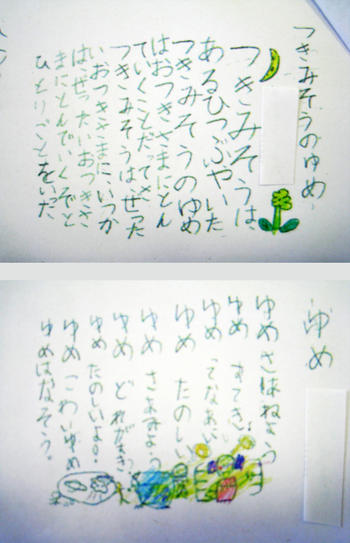 つきみそうのゆめ
つきみそうは、
あるひつぶやいた
つきみそうのゆめ
はおつきさまにとん
ていくことだってさ
つきみそうは、ぜった
いおつきさまにいつか
はぜったいおつきさ
まにとんでいくぞと
ひとりごとをいった
ゆめ
ゆめ さはねよう
ゆめ すてき
ゆめ ってなあに
ゆめ たのしい
ゆめ さあみよう
ゆめ どれがすき
ゆめ たのしいよ。
ゆめ こわいゆめ
ゆめはなそう。